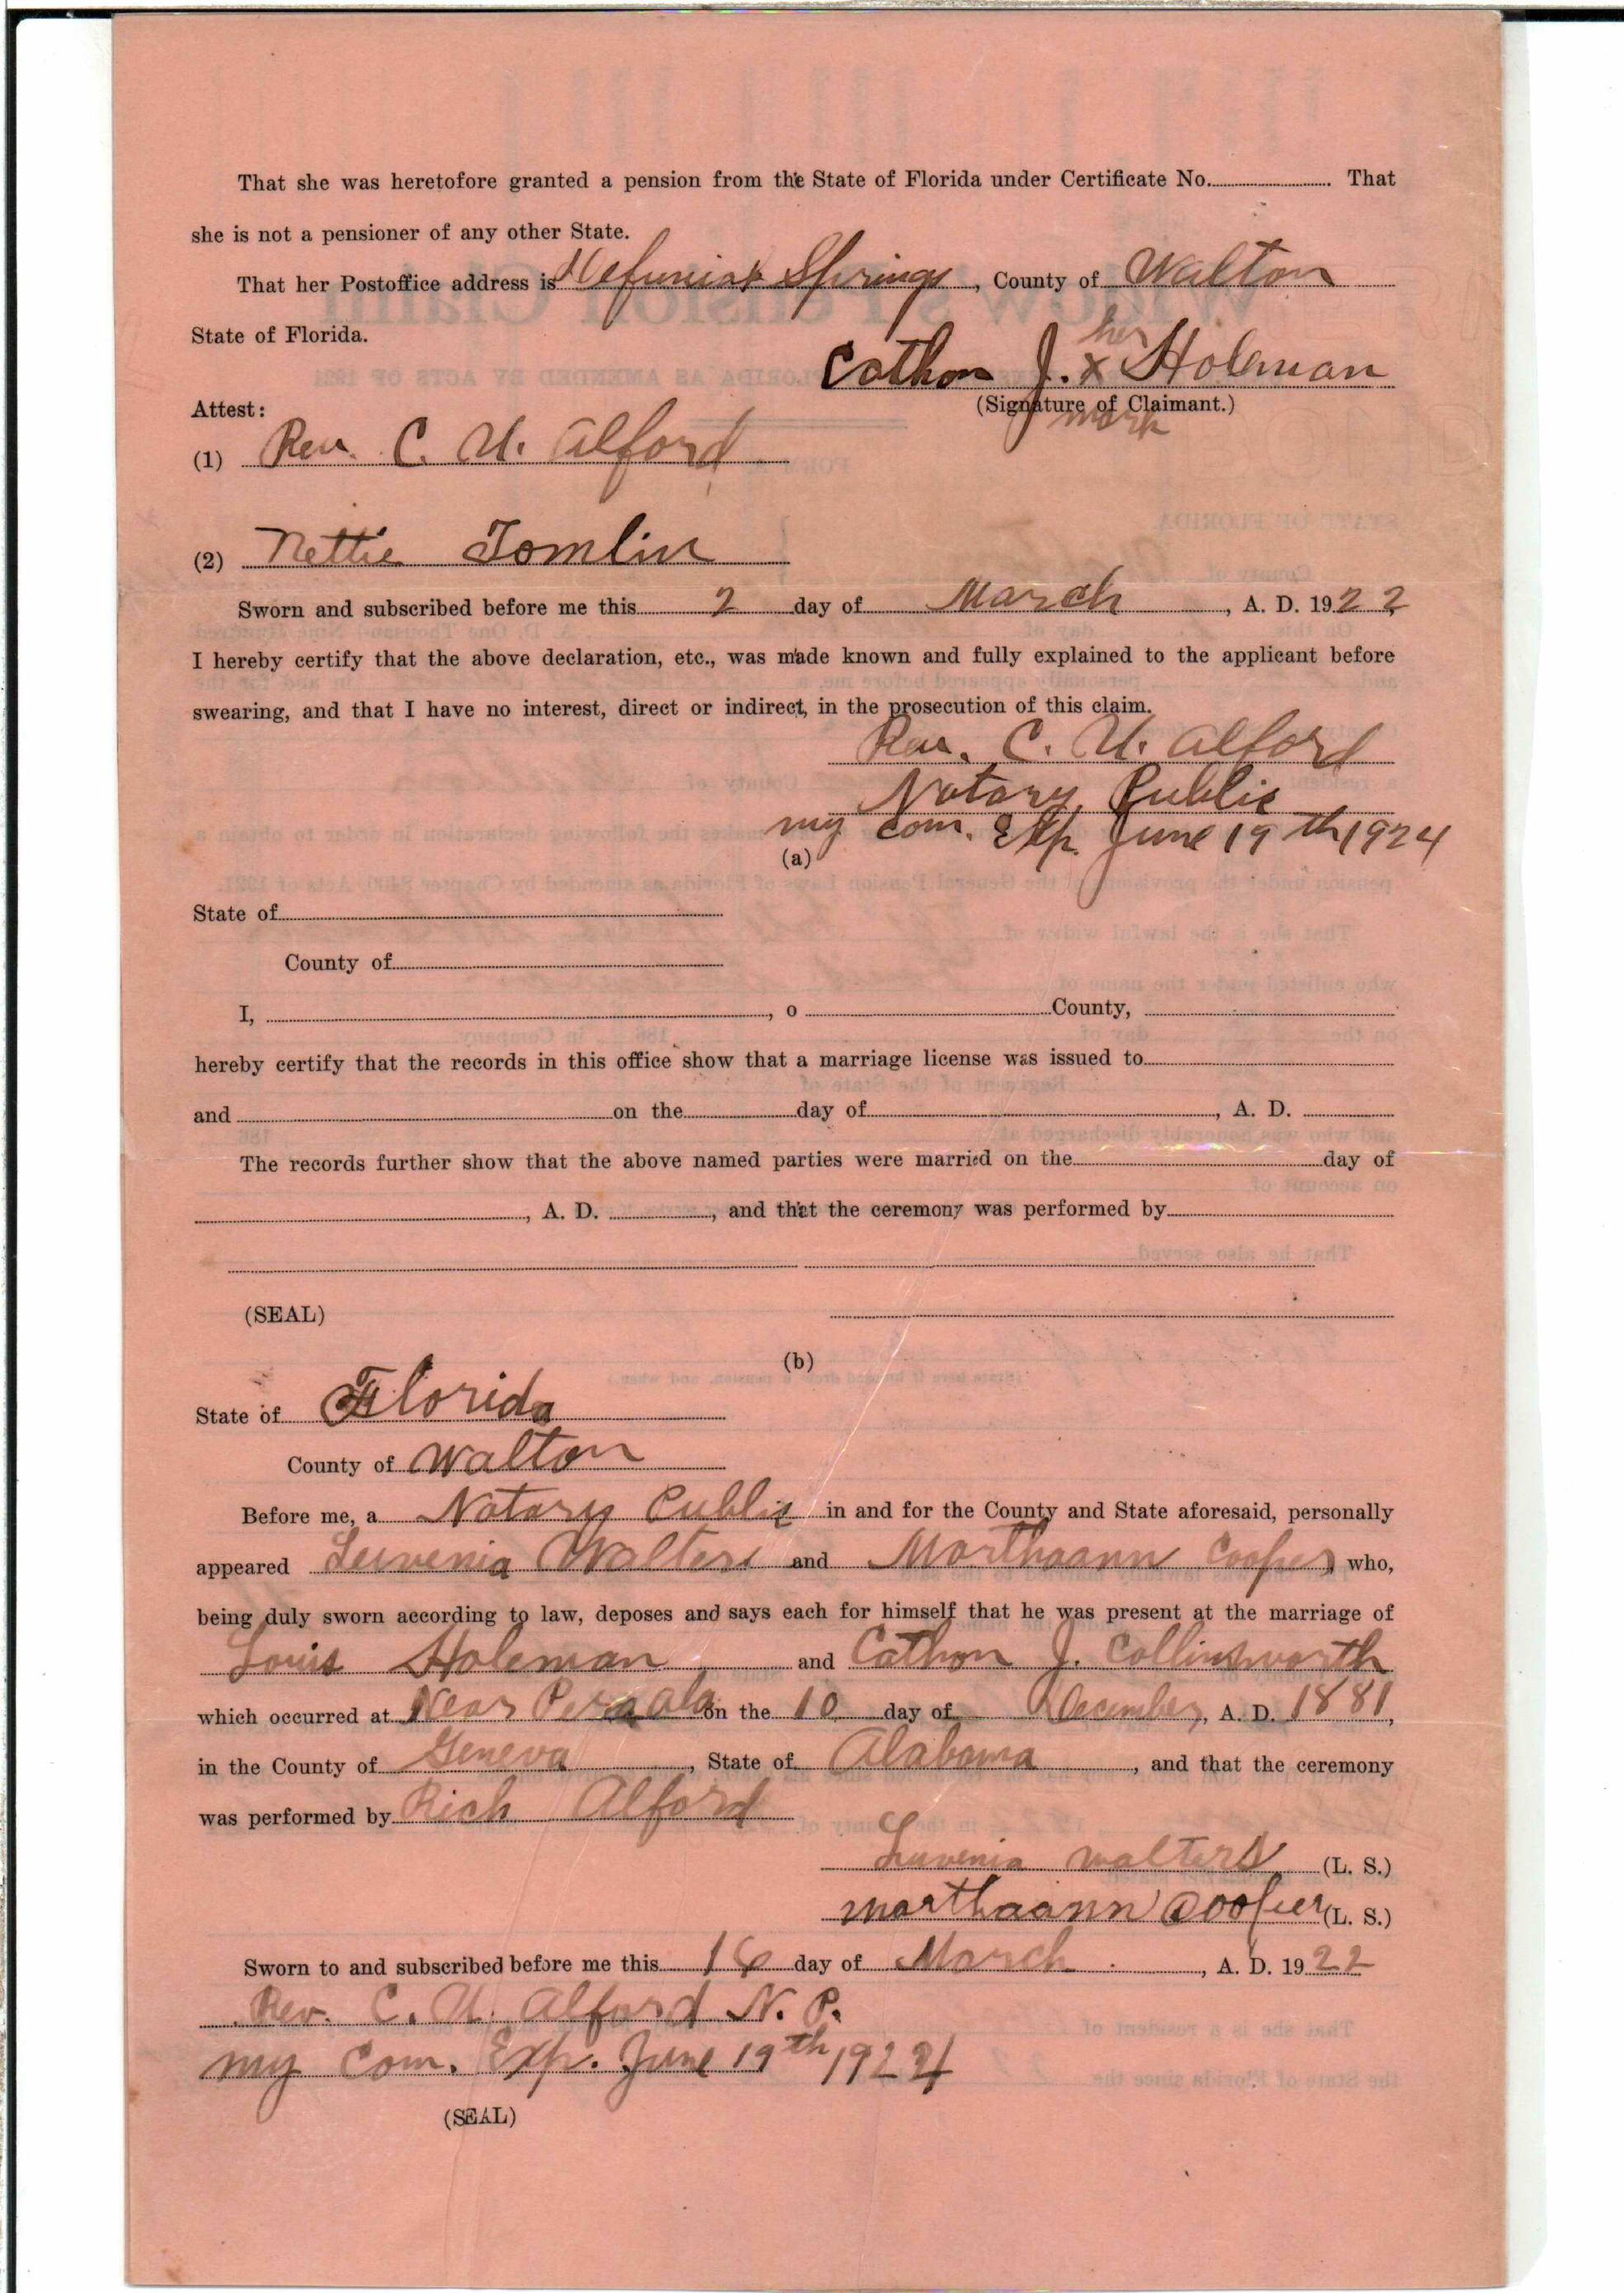 That she was heretofore granted a pension from the State of Florida under Certificate No. . That
she is not a pensioner of any other State.
That her Postoffice address is Defuniak Springs, County of Walton
State of Florida.
her
Cathon J. x Holeman
Attest: (Signature of Claimant.)
mark
(1) Rev. C. U. Alford
(2) Nettie Tomlin
Sworn and subscribed before me this 2 day of March, A. D. 1922
I hereby certify that the above declaration, etc., was made known and fully explained to the applicant before
swearing, and that I have no interest, direct or indirect, in the prosecution of this claim.
Rev. C. U. Alford
Notary Public
my com. Exp. June 19th 1924
(a)
State of
County of
I, , o County,
hereby certify that the records in this office show that a marriage license was issued to
and on the day of , A. D.
The records further show that the above named parties were married on the day of
, A. D. , and that the ceremony was performed by
(SEAL)
(b)
State of Florida
County of Walton
Before me, a Notary Public in and for the County and State aforesaid, personally
appeared Luvenia Walters and Marthaann Cooper, who,
being duly sworn according to law, deposes and says each for himself that he was present at the marriage of
Louis Holeman and Cathon J. Collinsworth
which occurred at Near Ala on the 10 day of December, A. D. 1881,
in the County of Geneva, State of Alabama, and that the ceremony
was performed by Rich Alford
Luvenia Walters (L. S.)
marthaann Cooper (L. S.)
Sworn to and subscribed before me this day of March, A. D. 1922
Rev. C. U. Alford N. P.
my Com. Exp. June 19th 1924
(SEAL)